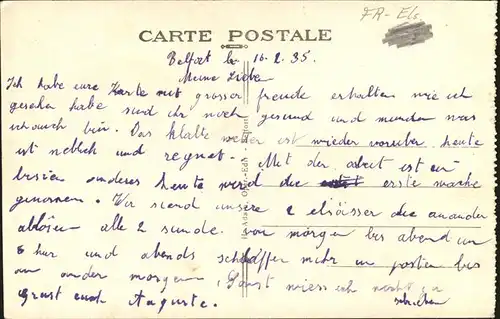 FR - Els
CARTE POSTALE
Belfort le 16.2.35.
Meine Liebe
Ich habe eure Karte mit grosser freude erhalten wie ich
gesehen habe sind ihr noch gesund und munder was
ich auch bin. Das Kalte weter ist wieder voruber heute
ist neblich und regnet. Mit der abeit ist ein
bisien anderes heute wird die erste wache
genomen. Wir siend unsere 2 elsässer die anander
ablösen alle 2 sunde. von morgen bis abend um
6 hur und abends schlaffen mihr im posten bis
am ander morgen. Sonst wiess ich nicht zu
schreiben
Grust euch Auguste.